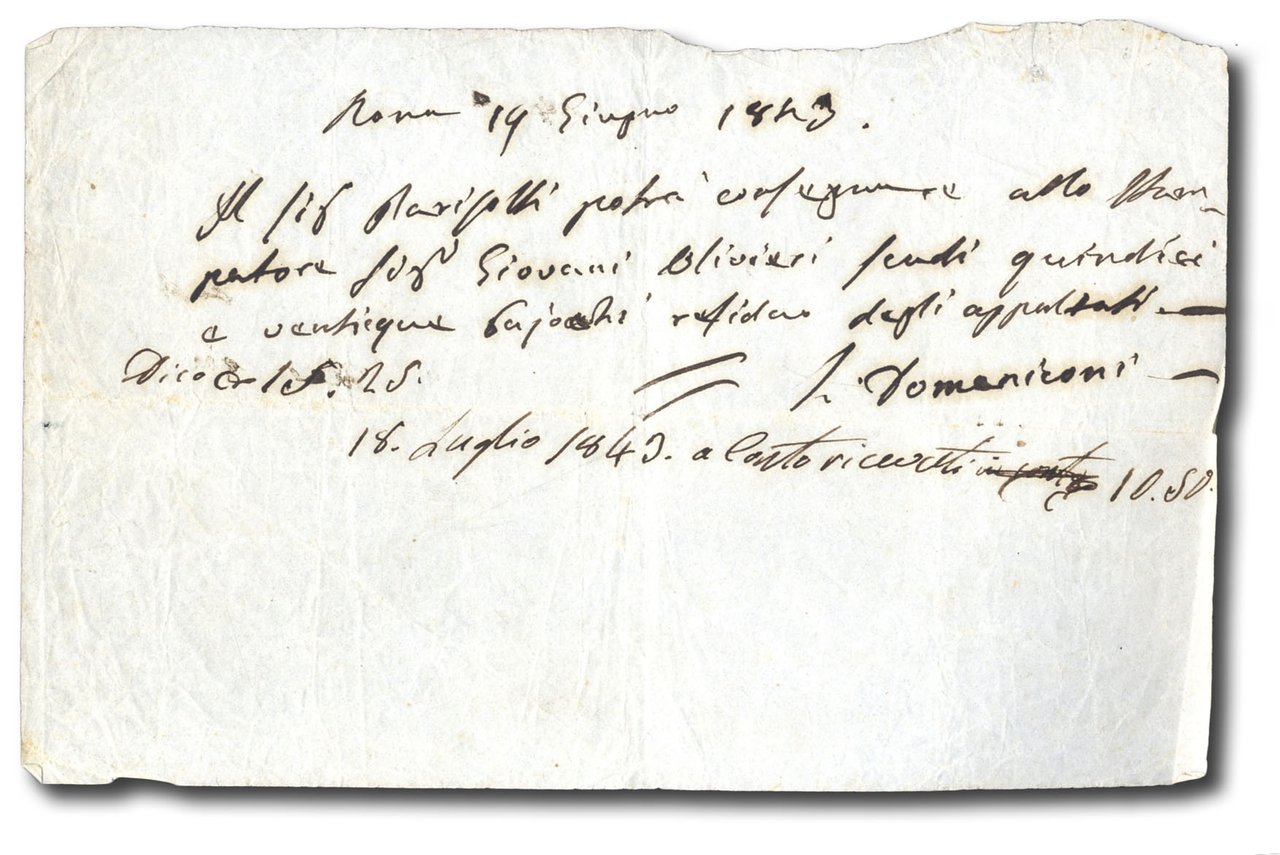 Roma 19 Giugno 1843.
Il Sig Parisotti potrà consegnare allo Stam-
patore Sigr Giovani Olivieri scudi quindici
e venticque bajochi residuo degli appaltati. —
Dico 15. 25. L. Domeniconi —
18. Luglio 1843. a Conto ricevuti in conto 10.50.